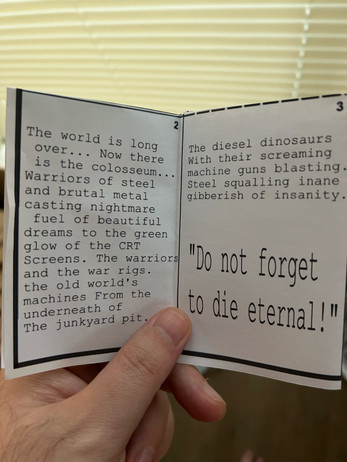 2
The world is long
over... Now there
is the colosseum...
Warriors of steel
and brutal metal
casting nightmare
fuel of beautiful
dreams to the green
glow of the CRT
Screens. The warriors
and the war rigs.
the old world's
machines From the
underneath of
The junkyard pit.
3
The diesel dinosaurs
With their screaming
machine guns blasting.
Steel squalling inane
gibberish of insanity.
"Do not forget
to die eternal!"